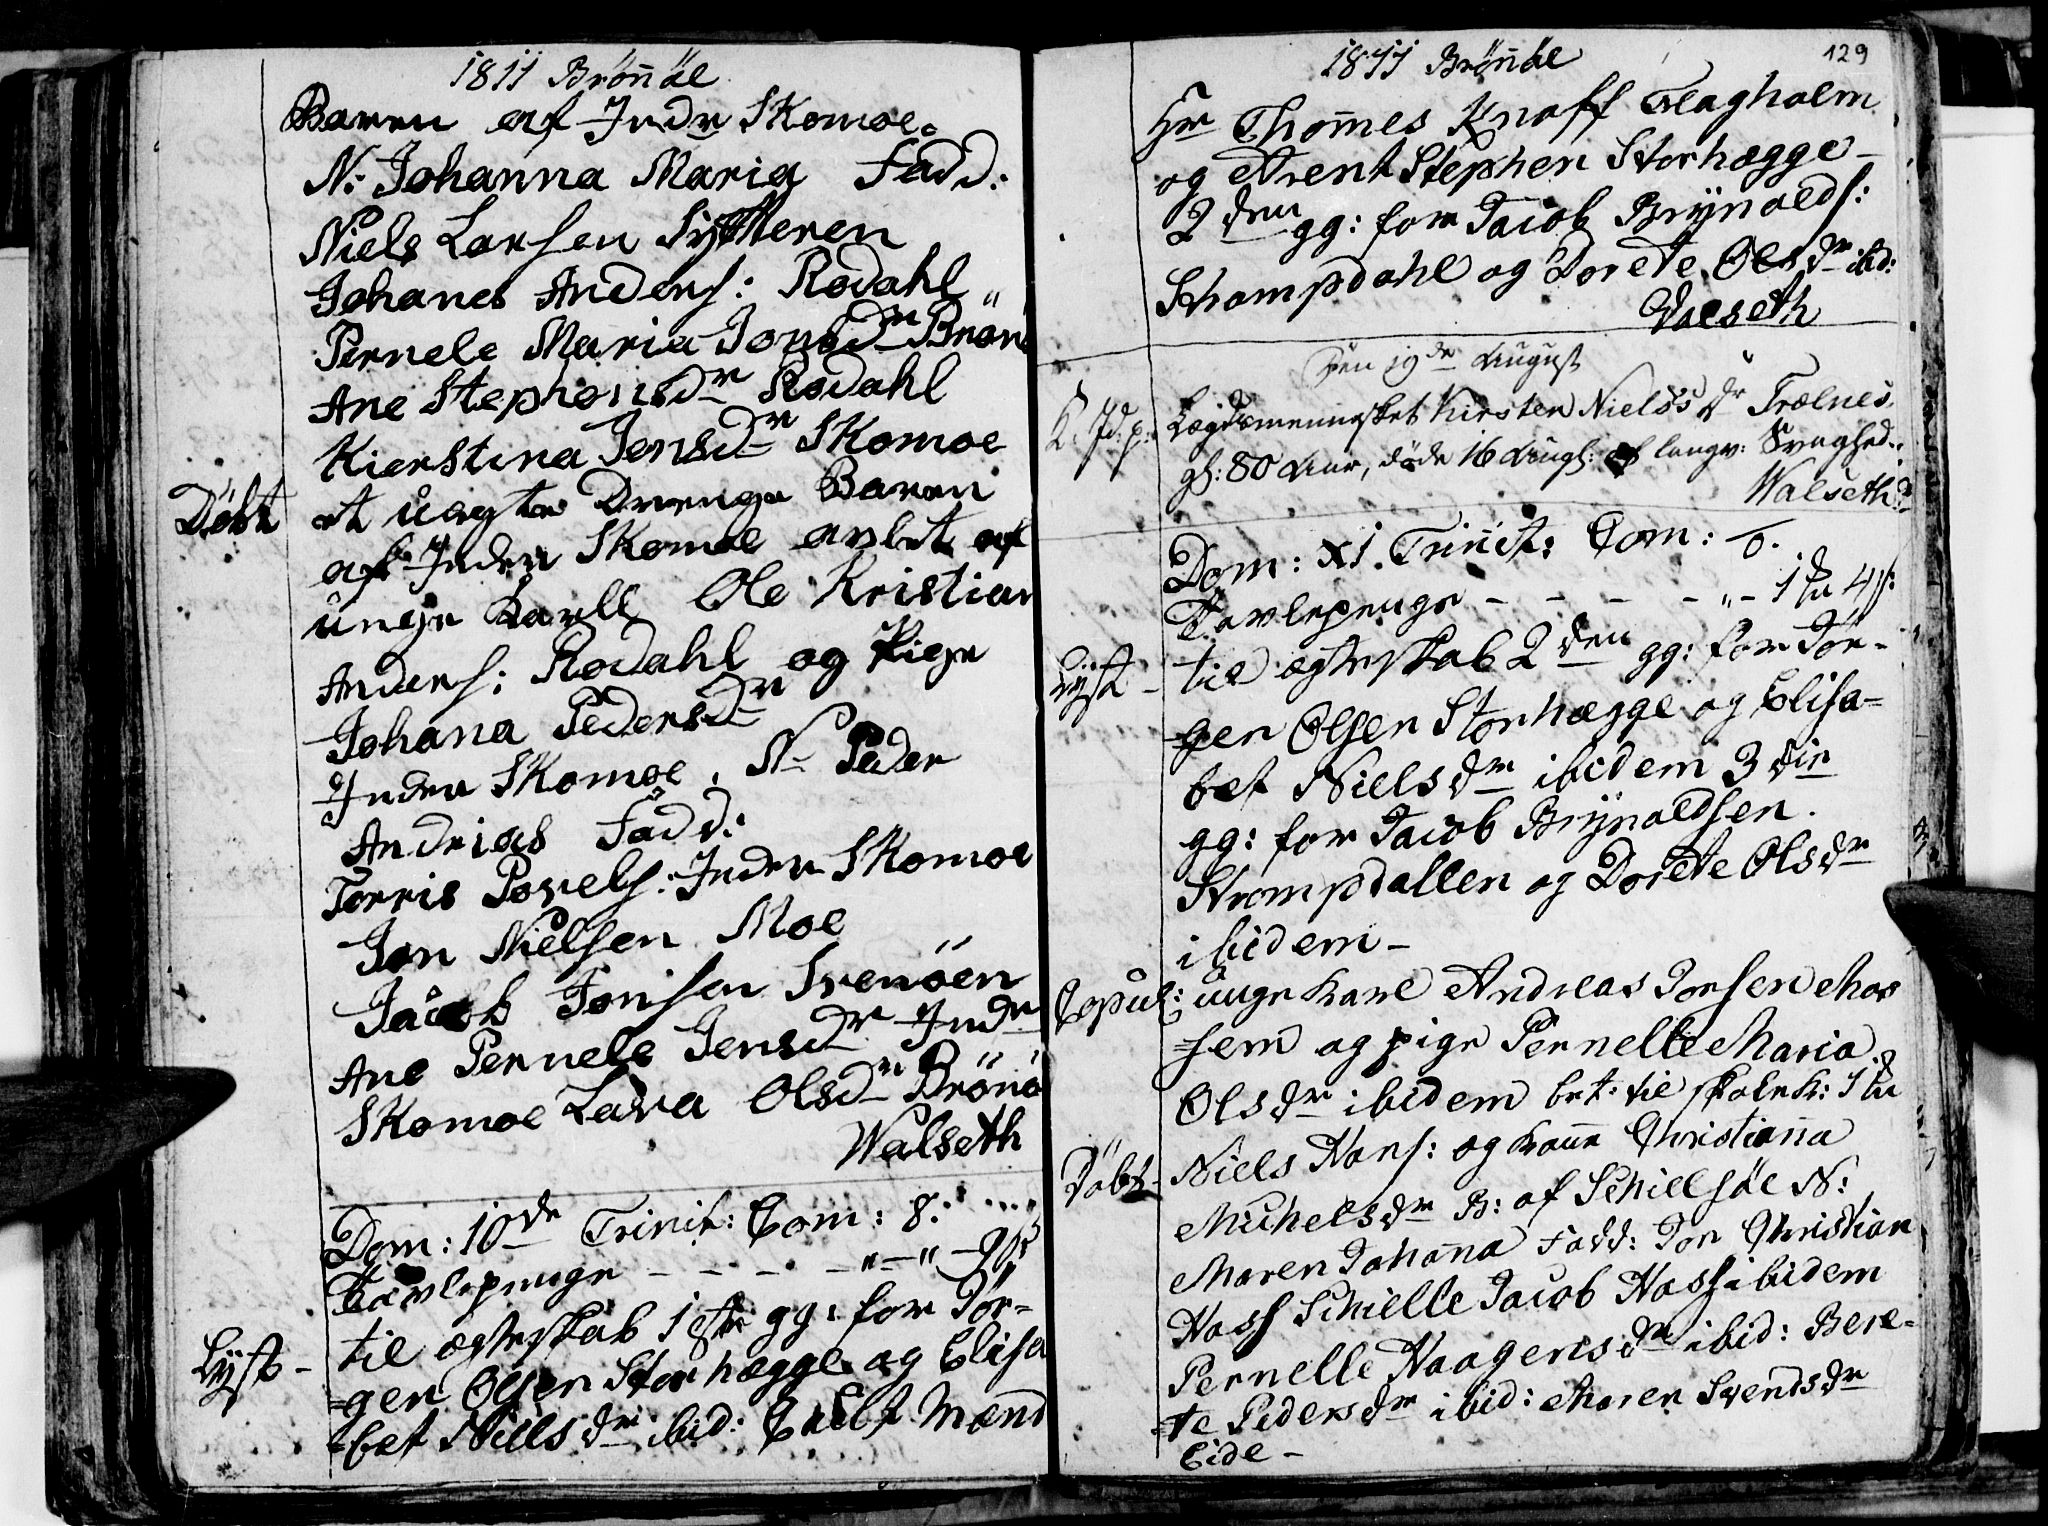 1811 Brönöe
Baren af Indr Skomoe.
N: Johanna Maria Fadd:
Niels Larsen Sÿtteren
Johanes Anders: Rødahl
Pernele Maria Jonsdr Brönö
Ane Stephensdr Rødahl
Kierstina Jensdr Skomoe
Döbt et uægte Drenge Baren
af Indre Skomoe avlet af
unge Karll Ole Kristian
Anders: Rødahl og Pige
Johana Pedersdr
Indre Skomoe. N Peder
Andrias Fadd:
Torris Povels: Indre Skomoe
Jon Nielsen Moe
Jacob Jonsen Svenöen
Ane Pernele Jensdr Indr
Skomoe Lava Olsdr Brönö
Walseth
Dom: 10de Trinit: Com: 8:
Tavlepenge - - - - " - " - 9 s:
Lÿst - til ægteskab 1ste gg: for Jör-
=gen Olsen Storhægge og Elisa
=bet Nielsdr ibid: Cavlt Mænd
1811 Brönöe 129
Hr Thomes Knoff Tilagholm
og Arent Stephen Storhægge -
2den gg: for Jacob Brÿnolds:
Strompdahl og Dorete Olsdr ibid:
Valseth
Den 19de August
K. Jd. p: Lægdsmennesket Kirsten Nielsdr Trælnes,
gl: 80 Aar, döde 16 Augs: af langv: Svaghed.
Walseth
Dom: XI. Trinit: Com: 0.
Tavlepenge - - - - " - 1 4 s:
Lÿst - til ægteskab 2den gg: for Jör-
=gen Olsen Storhægge og Elisa=
bet Nielsdr ibidem 3die
gg: for Jacob Brÿnoldsen
Strompdallen og Dorete Olsdr
ibidem -
Copul: unge Karl Andreas Jonsen Mos
=sem og pige Pernelle Maria
Olsdr ibidem bet: til skolek: 1
Döbt - Niels Hans: og kone Christianna
Michelsdr B: af Schielsöe N:
Maren Johanna Fadd: Jon Christian
Hass Schielle Jacob Hass ibidem
Pernelle Haagensdr ibid: Bere-
=te Pedersdr ibid: Maren Svendsdr
Eide -